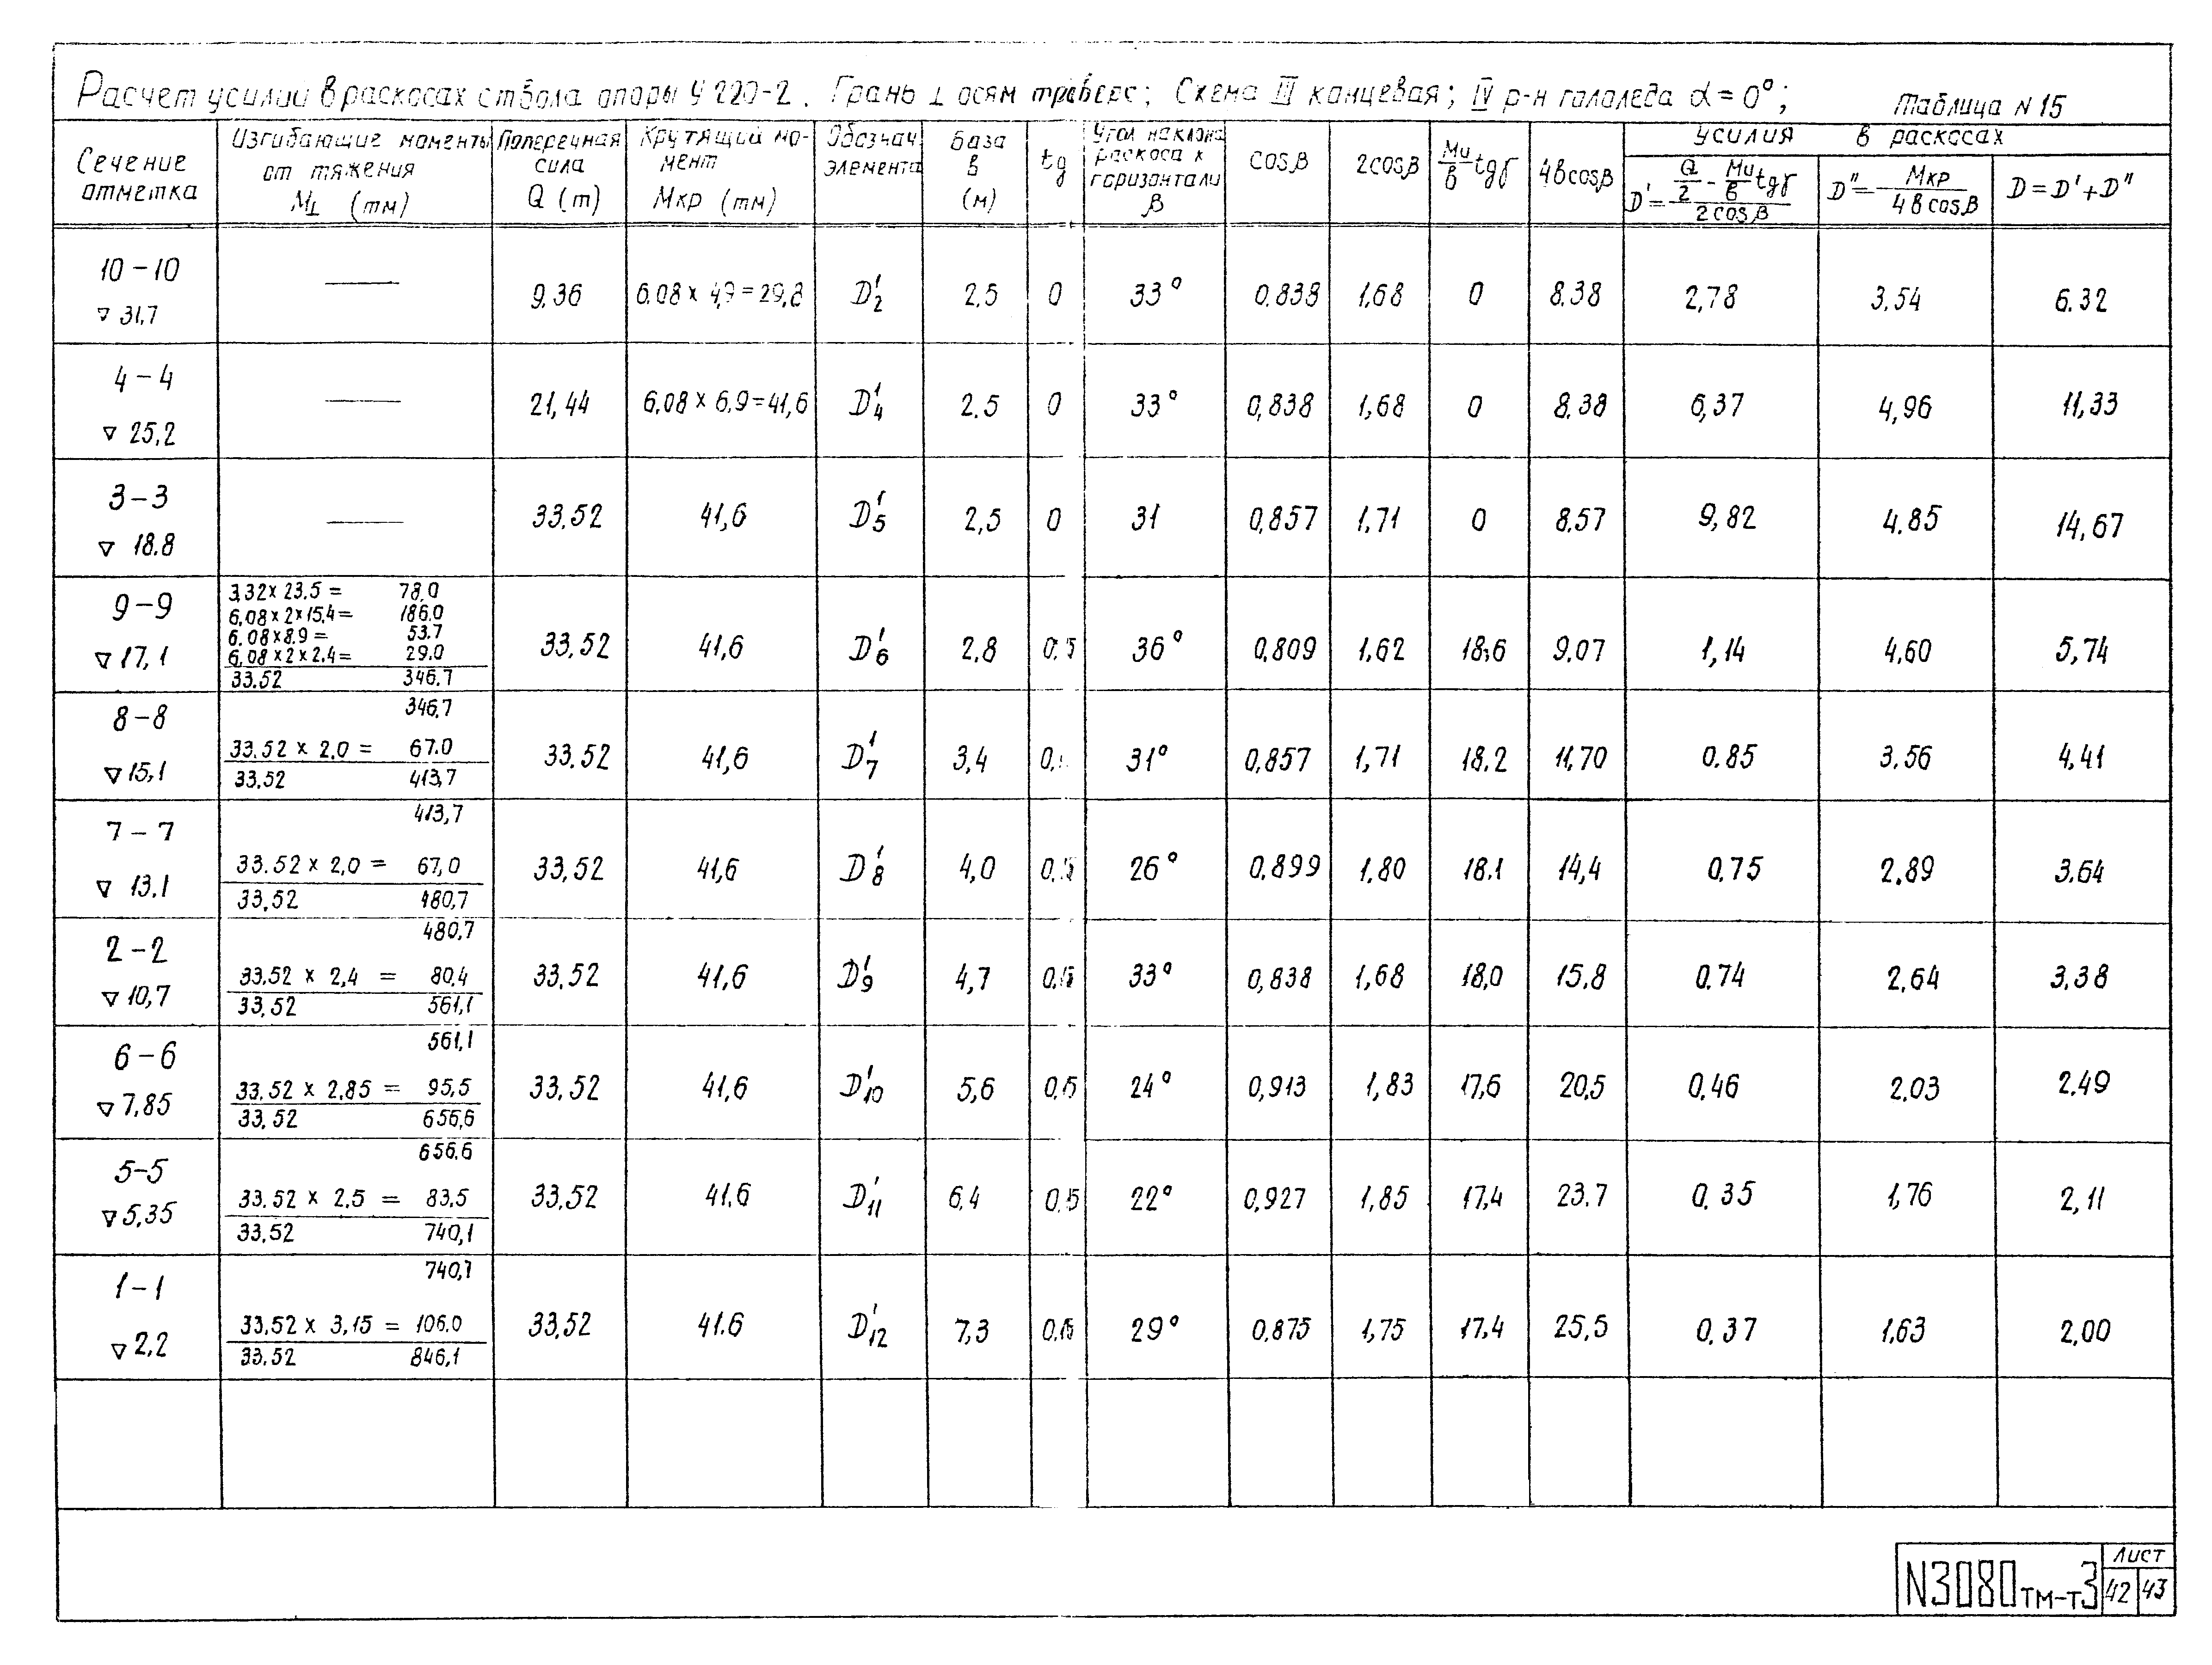 Расчет усилий в раскосах ствола опоры У 220-2. Грань ⊥ осям траверс; Схема III концевая; IV р-н гололеда α = 0°;
Таблица N 15
Сечение отметка | Изгибающие моменты от тяжения М⊥ (тм) | Поперечная сила Q (т) | Крутящий момент Мкр (тм) | Обознач элемента | База в (м) | tg | Угол наклона раскоса к горизонтали β | cosβ | 2cosβ | Mи/в tgγ | 4вcosβ | Усилия в раскосах
D' = (Q/2 - Mи/в tgγ) / 2cosβ | D" = Мкр / 4вcosβ | D = D' + D"
10-10 ▽ 31,7 | — | 9,36 | 6.08 × 4,9 = 29,8 | D'2 | 2,5 | 0 | 33° | 0.838 | 1,68 | 0 | 8.38 | 2,78 | 3.54 | 6.32
4-4 ▽ 25,2 | — | 21,44 | 6,08 × 6,9 = 41,6 | D'4 | 2.5 | 0 | 33° | 0,838 | 1,68 | 0 | 8.38 | 6,37 | 4,96 | 11,33
3-3 ▽ 18.8 | — | 33.52 | 41,6 | D'5 | 2,5 | 0 | 31 | 0,857 | 1,71 | 0 | 8,57 | 9,82 | 4.85 | 14,67
9-9 ▽ 17,1
3,32 × 23,5 = 78,0
6,08 × 2 × 15,4 = 186.0
6.08 × 8,9 = 53.7
6,08 × 2 × 2,4 = 29.0
33.52 346.7 | 33,52 | 41,6 | D'6 | 2,8 | 36° | 0,809 | 1,62 | 18,6 | 9,07 | 1,14 | 4,60 | 5,74
8-8 ▽ 15,1
346,7
33.52 × 2,0 = 67.0
33.52 413,7 | 33.52 | 41,6 | D'7 | 3,4 | 31° | 0,857 | 1,71 | 18.2 | 11,70 | 0.85 | 3.56 | 4,41
7-7 ▽ 13.1
413,7
33.52 × 2,0 = 67,0
33,52 480,7 | 33,52 | 41,6 | D'8 | 4,0 | 26° | 0,899 | 1,80 | 18.1 | 14,4 | 0,75 | 2.89 | 3.64
2-2 ▽ 10,7
480,7
33.52 × 2,4 = 80,4
33,52 561,1 | 33,52 | 41,6 | D'9 | 4,7 | 0,15 | 33° | 0,838 | 1,68 | 18,0 | 15.8 | 0.74 | 2,64 | 3.38
6-6 ▽ 7,85
561,1
33.52 × 2,85 = 95,5
33,52 656,6 | 33,52 | 41,6 | D'10 | 5,6 | 0,15 | 24° | 0,913 | 1,83 | 17,6 | 20,5 | 0,46 | 2.03 | 2.49
5-5 ▽ 5,35
656.6
33.52 × 2,5 = 83,5
33,52 740,1 | 33,52 | 41.6 | D'11 | 6,4 | 0,15 | 22° | 0,927 | 1,85 | 17,4 | 23.7 | 0.35 | 1,76 | 2,11
1-1 ▽ 2,2
740,1
33,52 × 3,15 = 106.0
33.52 846,1 | 33,52 | 41.6 | D'12 | 7,3 | 0,15 | 29° | 0.875 | 1,75 | 17.4 | 25,5 | 0,37 | 1.63 | 2,00
N3080тм-т3
Лист
42 43